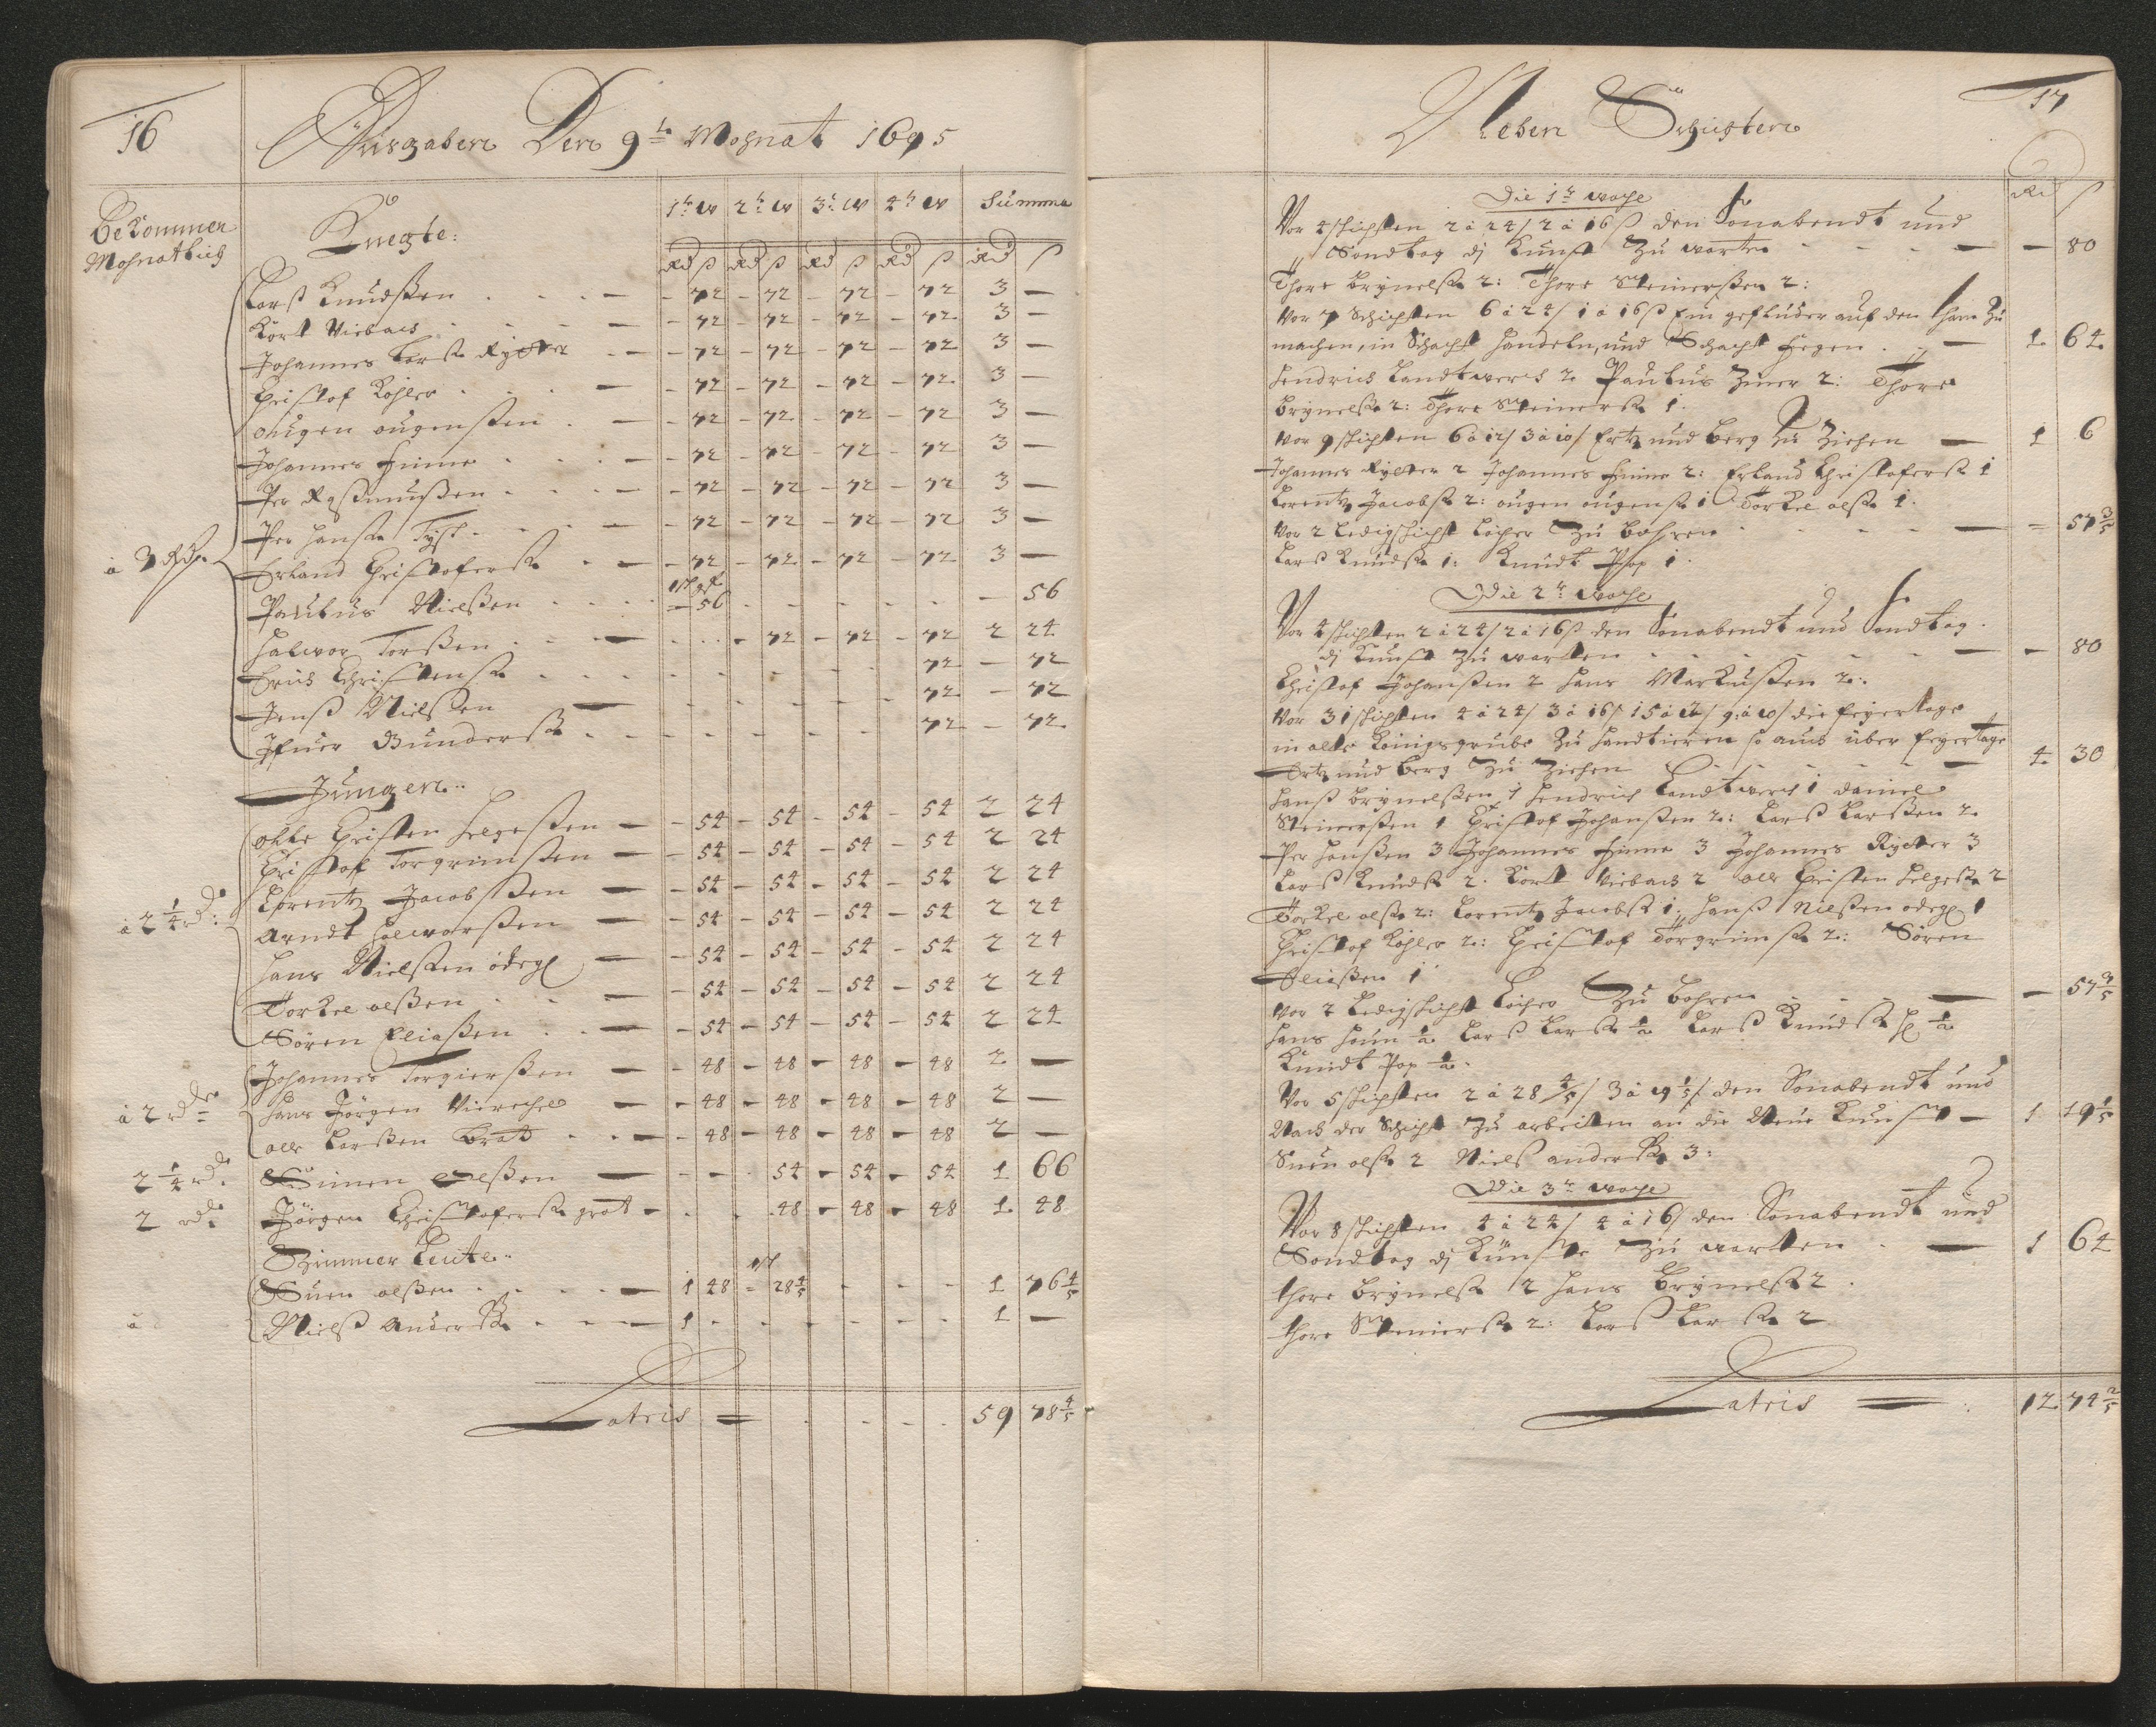 16
Ausgaben Den 9t Mohnat 1695
Bekommen
Mohnatlich
Knegte:
1t W 2t W 3t W 4t W Summa
Rd ß Rd ß Rd ß Rd ß Rd ß
Larß Knudßen - 72 - 72 - 72 - 72 3 -
Kort Viebach - 72 - 72 - 72 - 72 3 -
Johannes Larß Rytter - 72 - 72 - 72 - 72 3 -
Christof Köhler - 72 - 72 - 72 - 72 3 -
ougen ougenßen - 72 - 72 - 72 - 72 3 -
Johannes Finne - 72 - 72 - 72 - 72 3 -
Per Raßmußen - 72 - 72 - 72 - 72 3 -
Per Hanß Tysk - 72 - 72 - 72 - 72 3 -
à 3 Rd
Erland Christoferß - 72 - 72 - 72 - 72 3 -
Paulus Nielßen - 56 - 56
Halvor Torßen - 72 - 72 - 72 2 24
Erich Christenß 72 - 72
Jenß Nielßen 72 - 72
Ifuer Gunderß 72 - 72
Jungen
ohle Christen Helgeßen - 54 - 54 - 54 - 54 2 24
Christof Torgrimßen - 54 - 54 - 54 - 54 2 24
Lorentz Jacobßen - 54 - 54 - 54 - 54 2 24
à 2 1/4 Rd:
Arndt Halvorßen - 54 - 54 - 54 - 54 2 24
Hans Nielßen ödeg - 54 - 54 - 54 - 54 2 24
Torkel olßen - 54 - 54 - 54 - 54 2 24
Sören Eliaßen - 54 - 54 - 54 - 54 2 24
Johannes Torgierßen - 48 - 48 - 48 - 48 2 -
à 2 Rd
Hans Jörgen Vierecke - 48 - 48 - 48 - 48 2 -
olle Larßen Brat - 48 - 48 - 48 - 48 2 -
2 1/4 Rd
Simen olßen - 54 - 54 - 54 1 66
2 Rd
Jörgen Christoferß grot - 48 - 48 - 48 1 48
Zimmer Leute
Suen olßen 1 48 - 28 4/5 1 76 4/5
à
Nielß Anderß 1 1 -
Latris 59 78 4/5
17
Neben Schigten
Rd ß
Die 1te woche
Vor 4 schichten 2 à 24/ 2 à 16ß den Sonabendt und
Sondtag di Kunst Zu warten - 80
Thore Brynelß 2: Thore Steinerßen 2:
Vor 7 Schichten 6 à 24/ 1 à 16ß Ein gefluder auf den Zu
machen, in Schacht Handeln, und Schacht fegen 1 64
Hendrich Landtwerch 2 Paulus 2: Thore
Brynelß 2: Thore Steinerß 1.
Vor 9 schichten 6 à 12/ 3 à 10/ Ertz und berg Zu Ziehen 1 6
Johannes Rytter 2 Johannes Finne 2: Erland Christoferß 1
Lorentz Jacobß 2: ougen ougenß 1 Torkel olß 1.
Vor 2 Ledigschicht Löcher Zu bohren - 57 3/5
Larß Knudß 1: Knudt Pop 1.
Die 2te woche
Vor 4 schichten 2 à 24/ 2 à 16ß den Sonabendt und Sondtag
di Kunst Zu warten - 80
Christof Johanßen 2 Hans Markußen 2:
Vor 31 schichten 4 à 24/ 3 à 16/ 15 à 12/ 9 à 10/ die feyertage
in alte Königsgrube Zu Handtieren so auch über feyertage
Ertz und berg Zu Ziehen 4 30
Hanß Brynelßen 1 Hendrich Landtwerch 1 Daniel
Steinerßen 1 Christof Johanßen 2: Larß Larßen 2
Per Hanßen 3 Johannes Finne 3 Johannes Rytter 3
Larß Knudß 2. Kort Viebach 2 olle Christen Helgeß 2
Torkel olß 2: Lorentz Jacobß 1: Hanß Nielßen ödeg 1
Christof Köhler 2: Christof Torgrimß 2: Sören
Eliaßen 1
Vor 2 Ledigschicht Löcher Zu bohren - 57 3/5
Hans 1/2 Larß Larß 1/2 Larß Knudß 1/2
Knudt Pop 1/2.
Vor 5 schichten 2 à 28 4/5/ 3 à 19 1/5/ den Sonabendt und
Nach der Schicht Zu arbeiten an die Neue Kunst - 1 19 1/5
Suen olß 2 Nielß anderß 3:
Die 3te woche
Vor 8 schichten 4 à 24/ 4 à 16/ den Sonabendt und
Sondtag di Künste Zu warten 1 64
Thore Brynelß 2 Hans Brynelß 2.
Thore Steinerß 2: Larß Larß 2
Latris 12 74 2/5